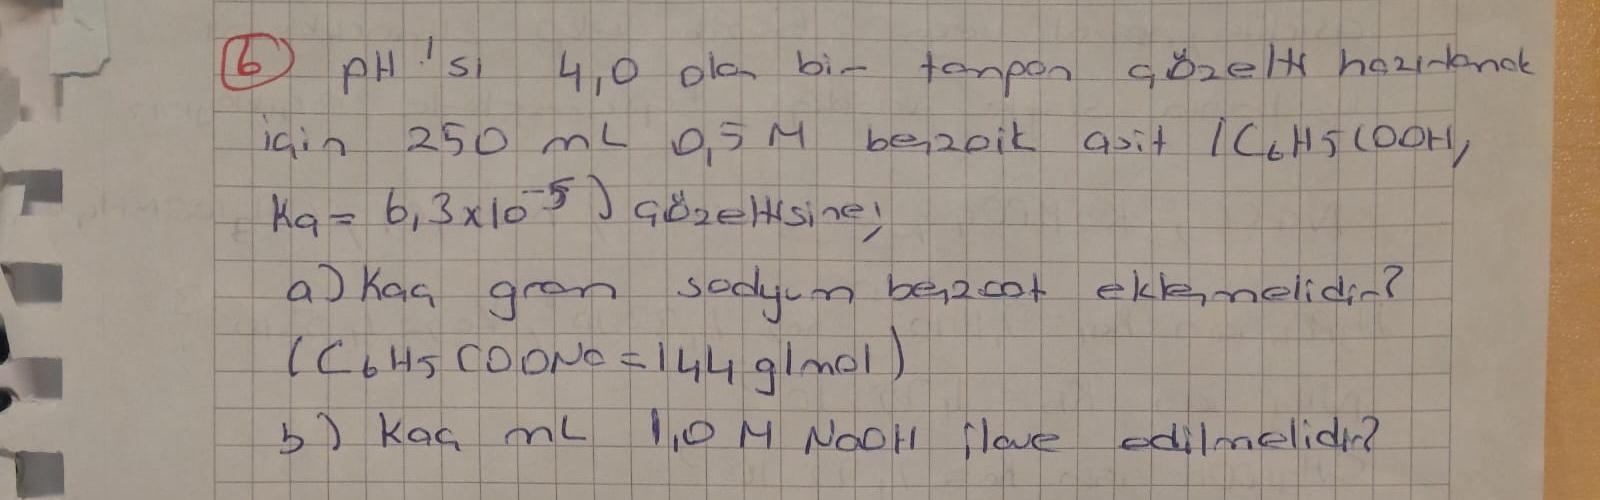 6 pH'sı 4,0 olan bir tampon çözelti hazırlamak
için 250 mL 0,5 M benzoik asit (C6H5COOH,
Ka = 6,3x10⁻⁵) çözeltisine;
a) Kaç gram sodyum benzoat eklenmelidir?
(C6H5COONa = 144 g/mol)
b) Kaç mL 1,0 M NaOH ilave edilmelidir?